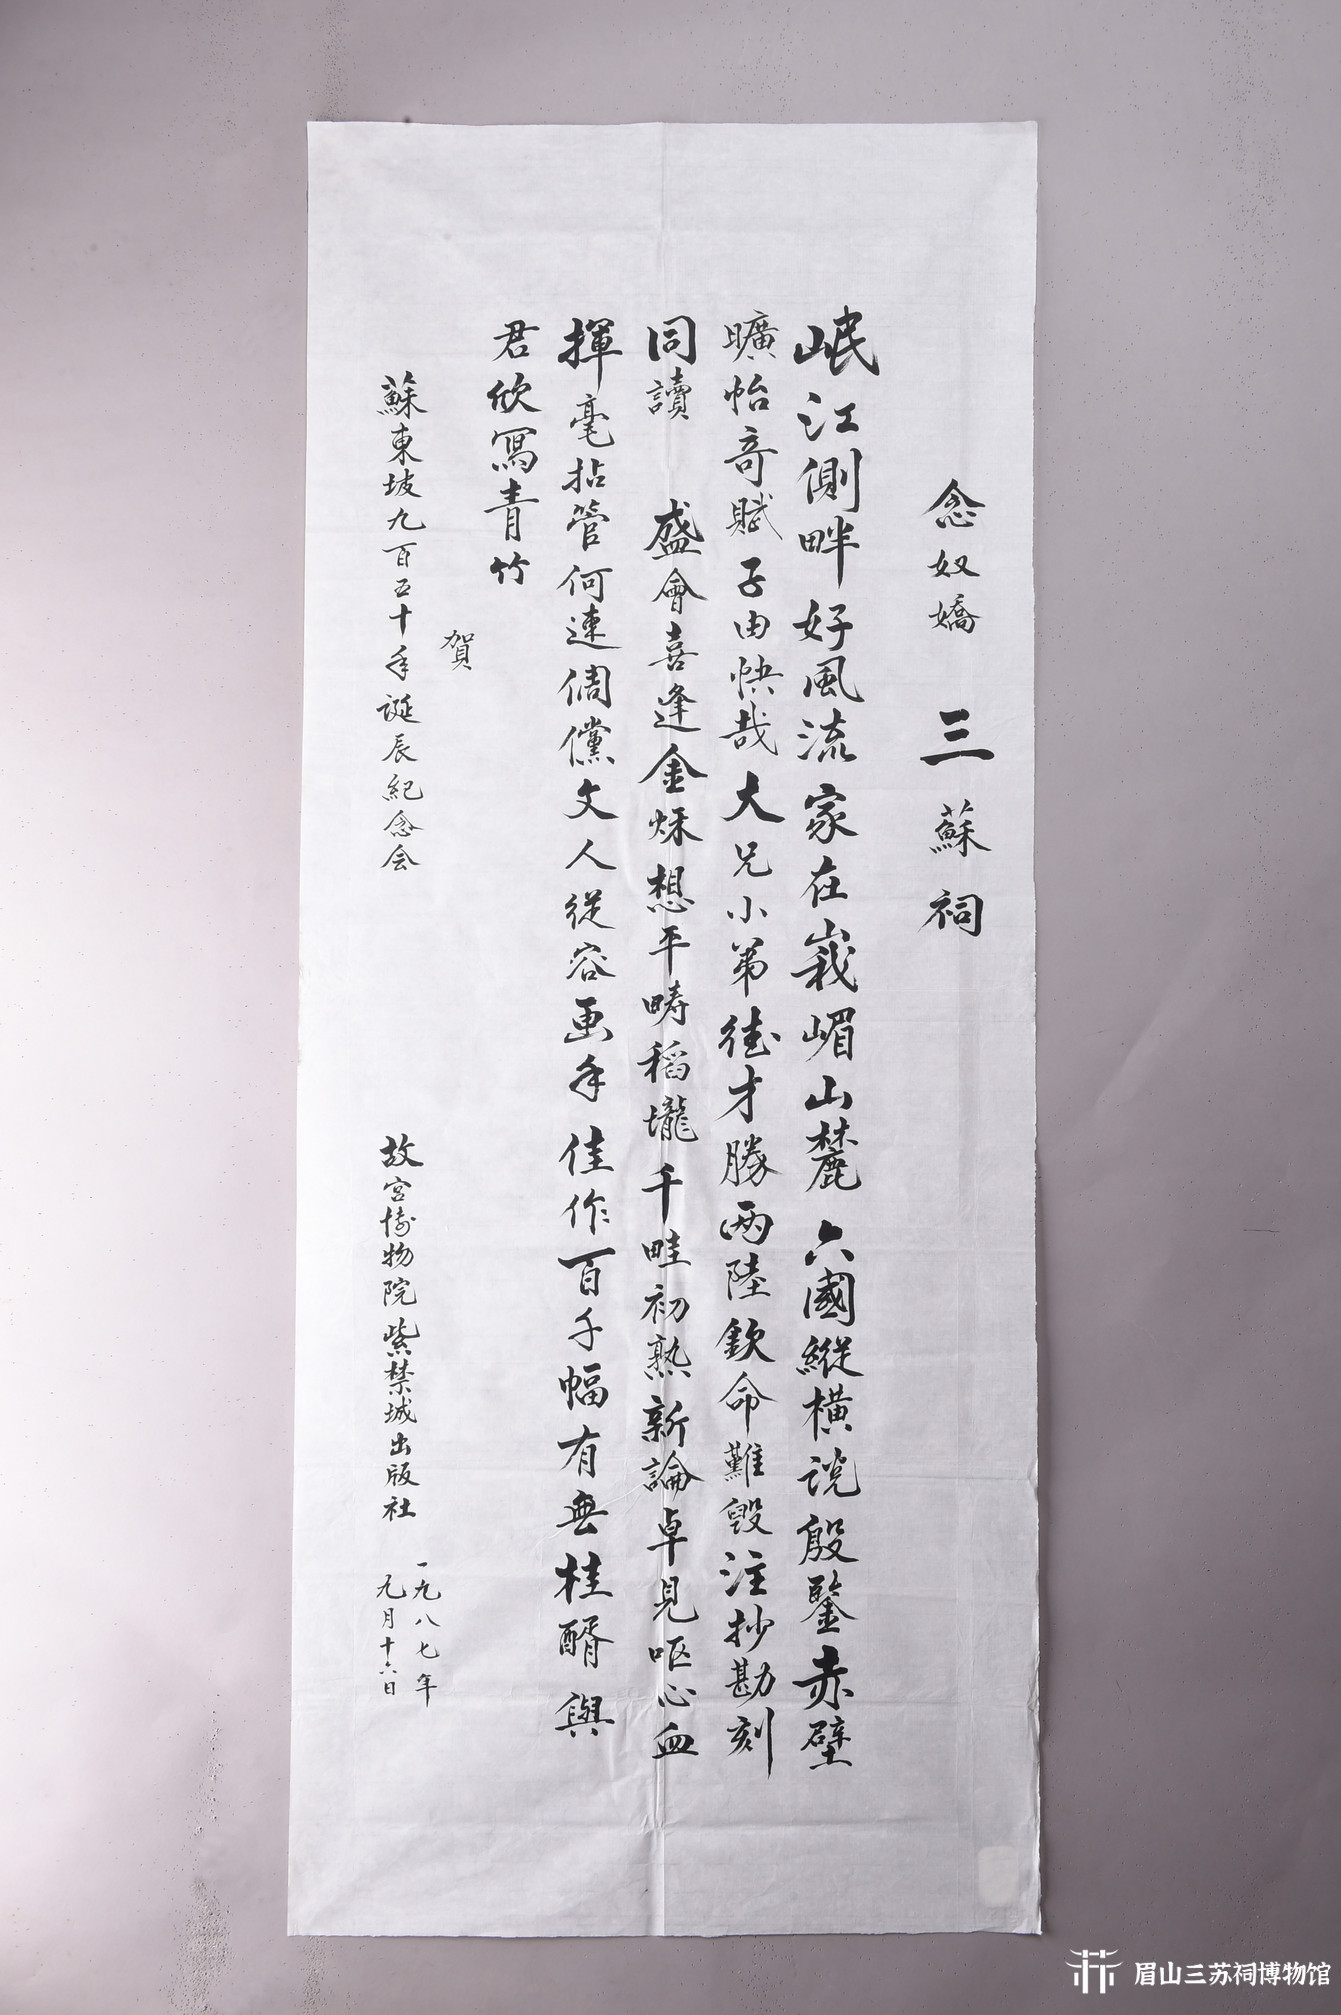 念奴嬌 三蘇祠
岷江側畔好風流家在峩嵋山麓六國縱横説殷鑒赤壁
曠怡奇賦子由快哉大兄小弟德才勝兩陸欽命難毀注抄勘刻
同讀 盛會喜逢金秌想平疇稻壠千畦初熟新論卓見呕心血
揮毫拈管何速倜儻文人從容画手佳作百千幅有無桂醑與
君欣寫青竹
賀
蘇東坡九百五十年誕辰紀念会
故宫博物院紫禁城出版社
一九八七年
九月十六日
眉山三苏祠博物馆